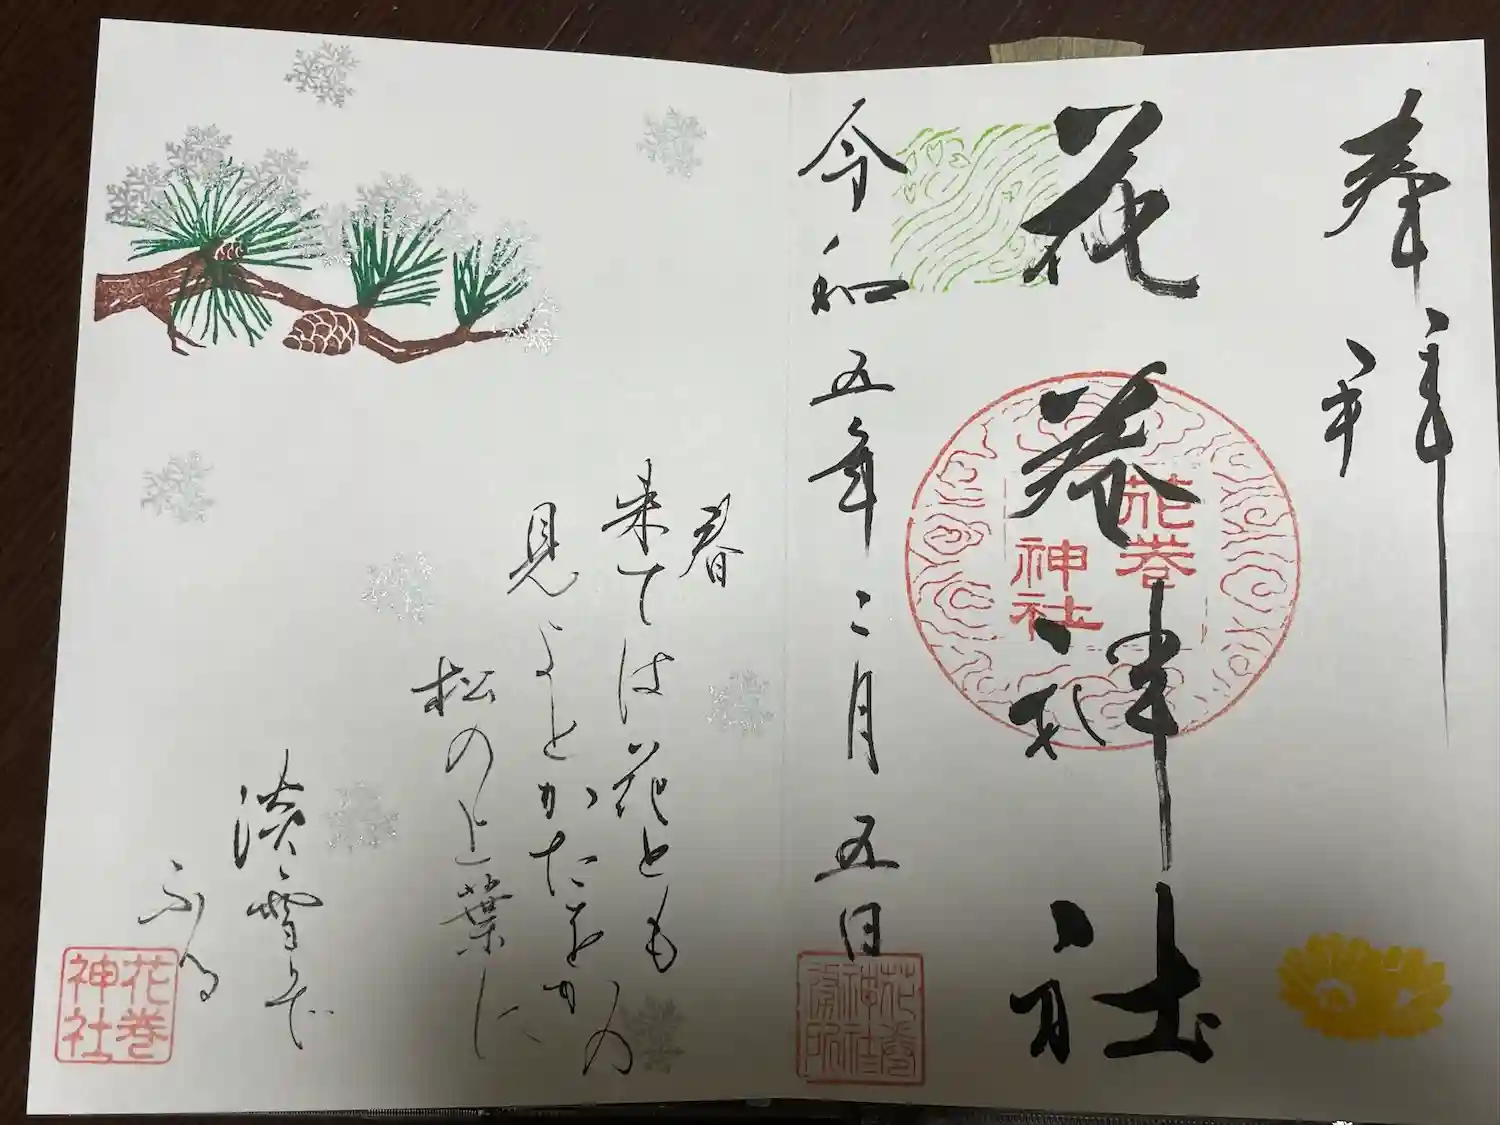 奉拝
花巻神社
花巻
神社
令和五年二月五日
花巻
神社
務所
春
来ては花とも
見よとかたをかの
松の上葉に
淡雪ぞ
ふる
花巻
神社